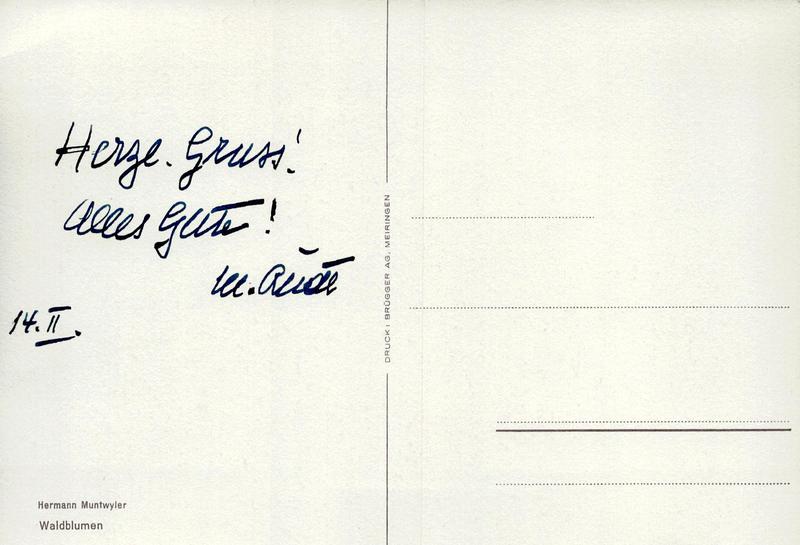 Herzl. Gruss!
Alles Gute!
M.
14. II.
DRUCK: BRÜGGER AG, MEIRINGEN
Hermann Muntwyler
Waldblumen